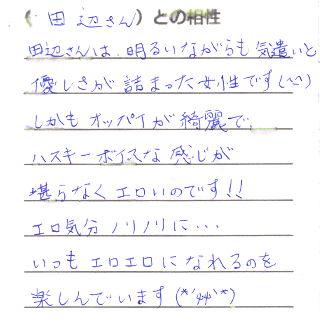 ( 田辺さん ) との相性
田辺さんは、明るいながらも気遣いと
優しさが詰まった女性です(^^)
しかもオッパイが綺麗で、
ハスキーボイスな感じが
堪らなくエロいのです!!
エロ気分ノリノリに・・・
いつもエロエロになれるのを
楽しんでいます(*´艸`*)